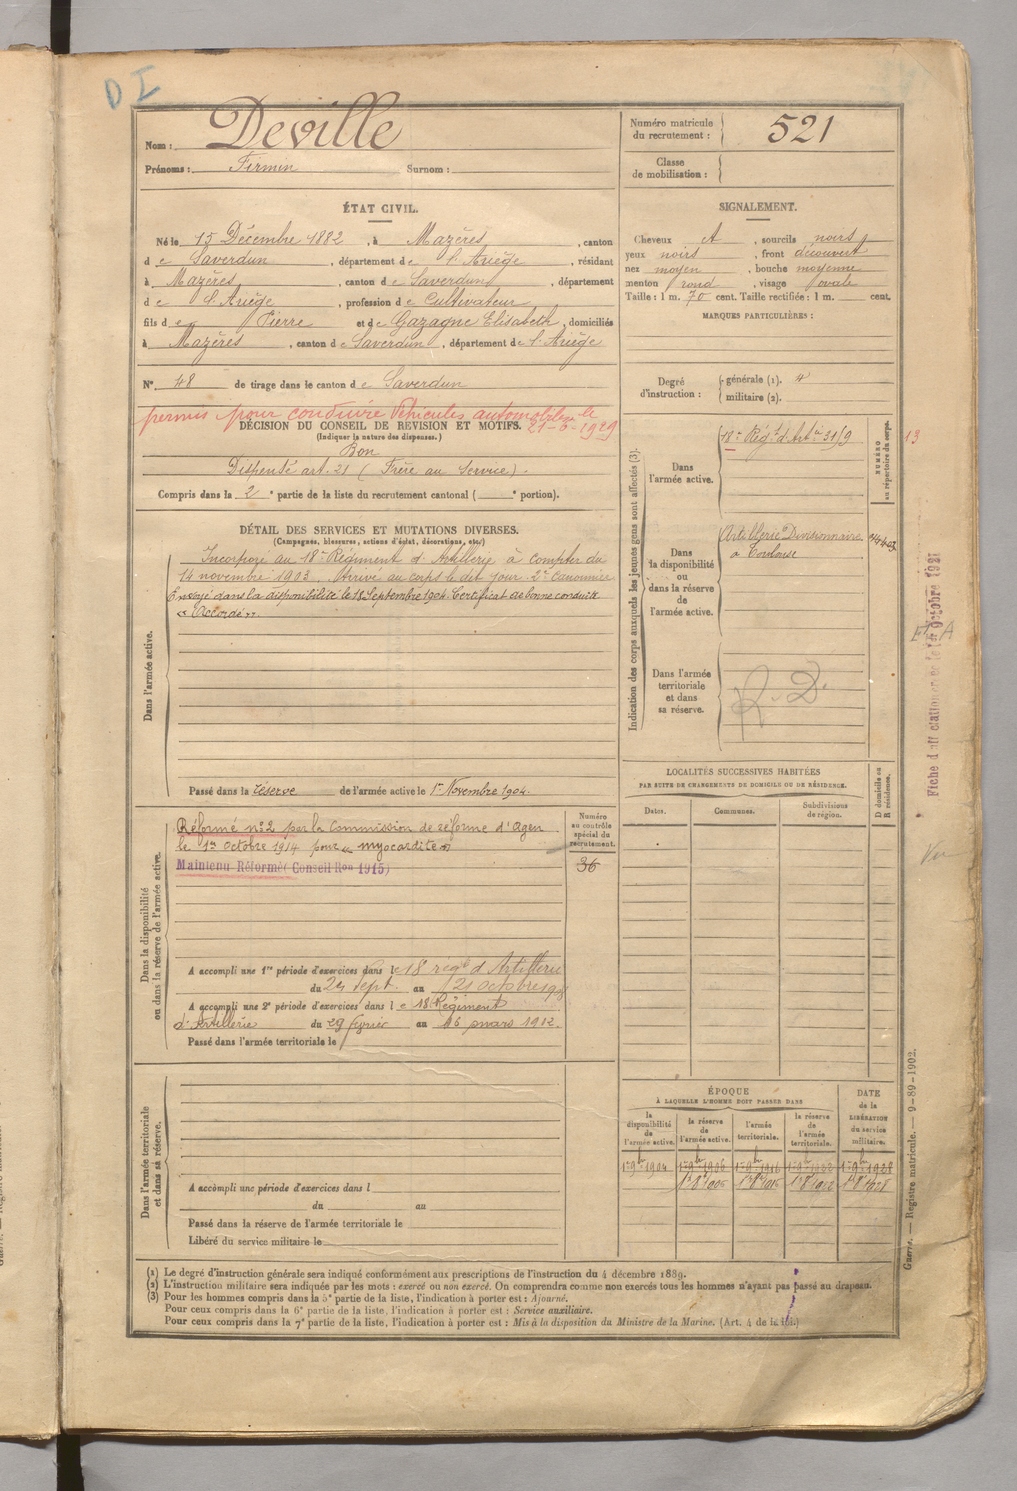 D I
Nom : Deville
Prénoms : Firmin Surnom :
Numéro matricule
du recrutement : 521
Classe
de mobilisation :
ÉTAT CIVIL.
Né le 15 Décembre 1882, à Mazères, canton
de Saverdun, département de l'Ariège, résidant
à Mazères, canton de Saverdun, département
de l'Ariège, profession de Cultivateur
fils de Pierre et de Gazagne Elisabeth, domiciliés
à Mazères, canton de Saverdun, département de l'Ariège
N° 48 de tirage dans le canton de Saverdun
permis pour conduire Véhicules automobiles le
21-6-1929
DÉCISION DU CONSEIL DE REVISION ET MOTIFS.
(Indiquer la nature des dispenses.)
Bon
Dispensé art. 21 (Frère au Service).
Compris dans la 2e partie de la liste du recrutement cantonal ( e portion).
SIGNALEMENT.
Cheveux , sourcils noirs
yeux noirs, front découvert
nez moyen, bouche moyenne
menton rond, visage ovale
Taille : 1 m. 70 cent. Taille rectifiée : 1 m. cent.
MARQUES PARTICULIÈRES :
Degré
d'instruction :
générale (1).
militaire (2).
DÉTAIL DES SERVICES ET MUTATIONS DIVERSES.
(Campagnes, blessures, actions d'éclat, décorations, etc.)
Dans l'armée active.
Incorporé au 18e Régiment d'Artillerie à compter du
14 novembre 1903. Arrivé au corps le dit jour. 2e Canonnier
Envoyé dans la disponibilité le 18 Septembre 1904. Certificat de bonne conduite
« Accordé ».
Passé dans la réserve de l'armée active le 1er Novembre 1904.
Indication des corps auxquels les jeunes gens sont affectés (3).
Dans
l'armée active.
18e Régt d'Artie 31/9
NUMÉRO
au répertoire du corps.
13
Dans
la disponibilité
ou
dans la réserve
de
l'armée active.
Artillerie Divisionnaire
à Toulouse
Dans l'armée
territoriale
et dans
sa réserve.
R. D.
Fiche d'affectation le 1er Octobre 1921
Dans la disponibilité
ou dans la réserve de l'armée active.
Réformé n° 2 par la Commission de réforme d'Agen
le 1er octobre 1914 pour « myocardite »
Maintenu Réformé (Conseil Ron 1915)
Numéro
au contrôle
spécial du
recrutement.
36
A accompli une 1re période d'exercices dans le 18 regt d'Artillerie
du 24 Sept. au 21 octobre
A accompli une 2e période d'exercices dans le 18e Régiment
d'Artillerie du 29 février au 16 mars 1912.
Passé dans l'armée territoriale le
LOCALITÉS SUCCESSIVES HABITÉES
PAR SUITE DE CHANGEMENTS DE DOMICILE OU DE RÉSIDENCE.
Dates. Communes. Subdivisions
de région.
D domicile ou
R résidence.
Dans l'armée territoriale
et dans sa réserve.
A accompli une période d'exercices dans l
du au
Passé dans la réserve de l'armée territoriale le
Libéré du service militaire le
ÉPOQUE
À LAQUELLE L'HOMME DOIT PASSER DANS
DATE
de la
LIBÉRATION
du service
militaire.
la
disponibilité
de
l'armée active.
la réserve
de
l'armée active.
l'armée
territoriale.
la réserve
de
l'armée
territoriale.
1er 9bre 1904 1er 9bre 1906 1er 9bre 1916 1er 9bre 1922 1er 9bre 1928
(1) Le degré d'instruction générale sera indiqué conformément aux prescriptions de l'instruction du 4 décembre 1889.
(2) L'instruction militaire sera indiquée par les mots : exercé ou non exercé. On comprendra comme non exercés tous les hommes n'ayant pas passé au drapeau.
(3) Pour les hommes compris dans la 5e partie de la liste, l'indication à porter est : Ajourné.
Pour ceux compris dans la 6e partie de la liste, l'indication à porter est : Service auxiliaire.
Pour ceux compris dans la 7e partie de la liste, l'indication à porter est : Mis à la disposition du Ministre de la Marine. (Art. 4 de la loi.)
Guerre. — Registre matricule. — 9-89-1902.